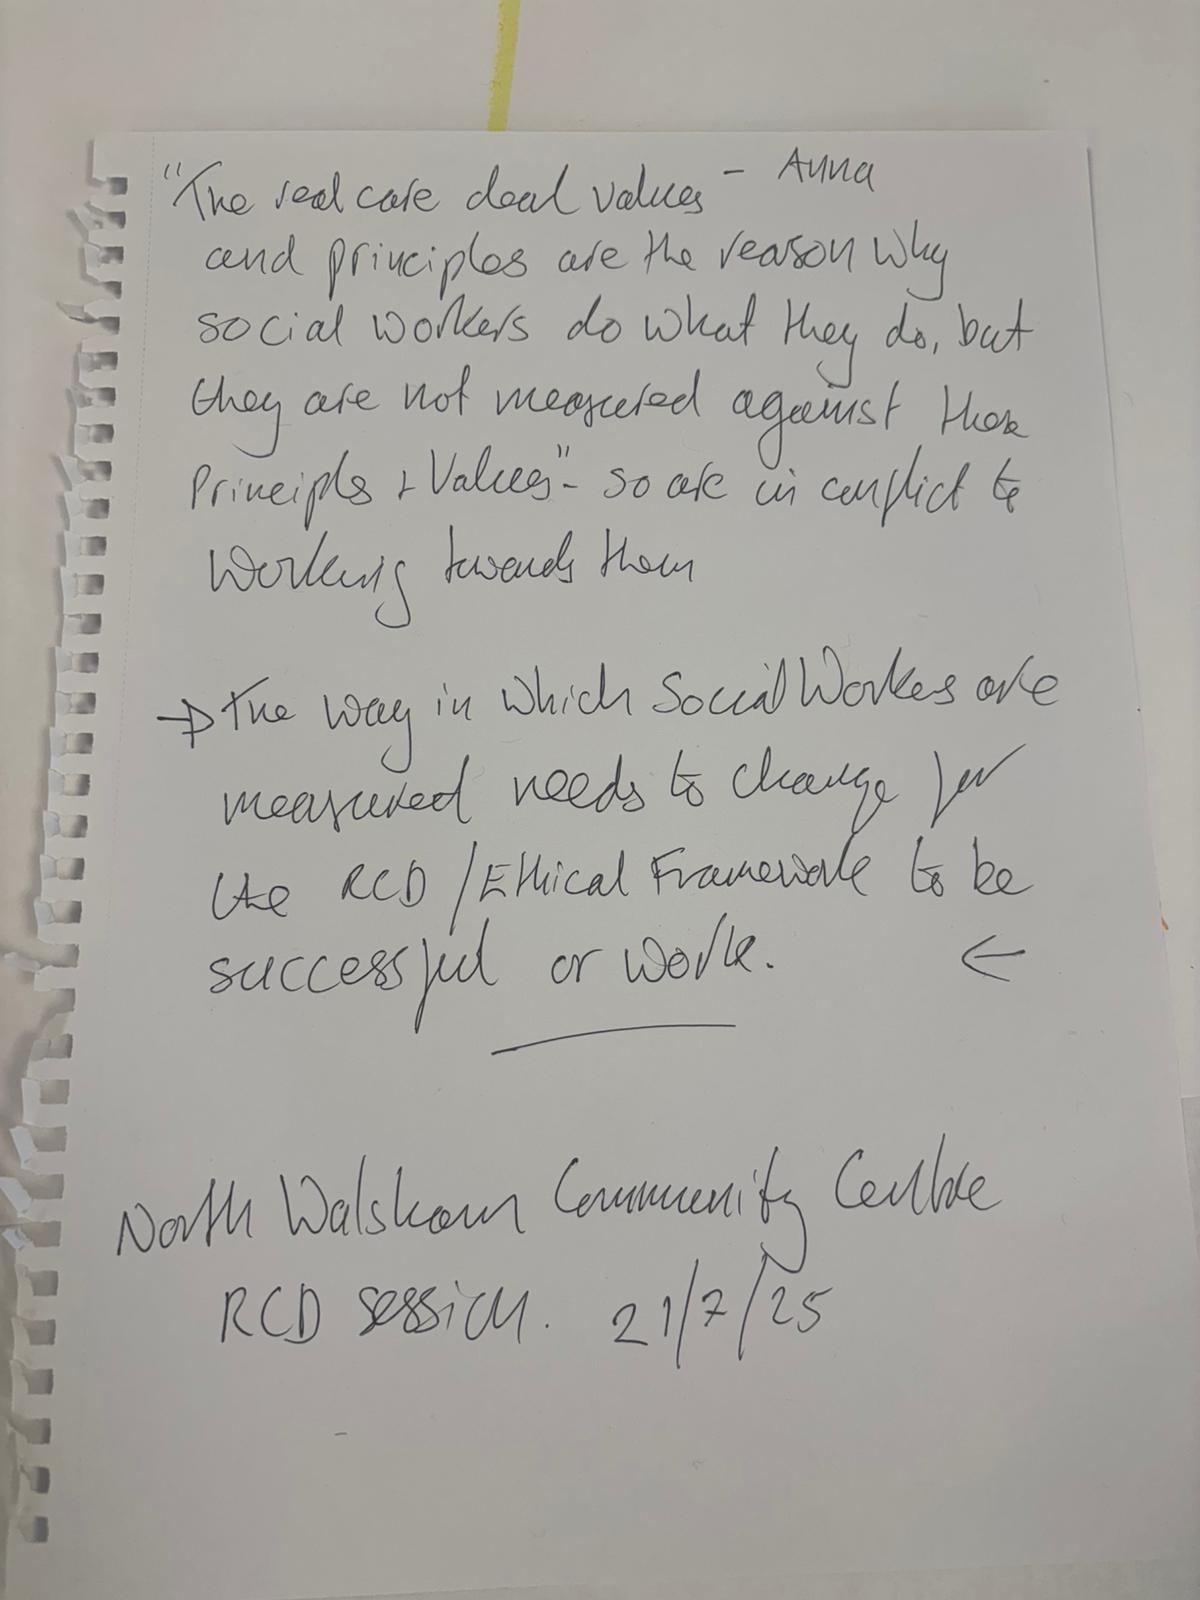 "The real care deal values" - Anna
and principles are the reason why
social workers do what they do, but
they are not measured against these
Principles + Values" - so are in conflict to
working towards them
→ The way in which Social Workers are
measured needs to change for
the RCD / Ethical Framework to be
successful or work. ←
North Walsham Community Centre
RCD session. 21/7/25